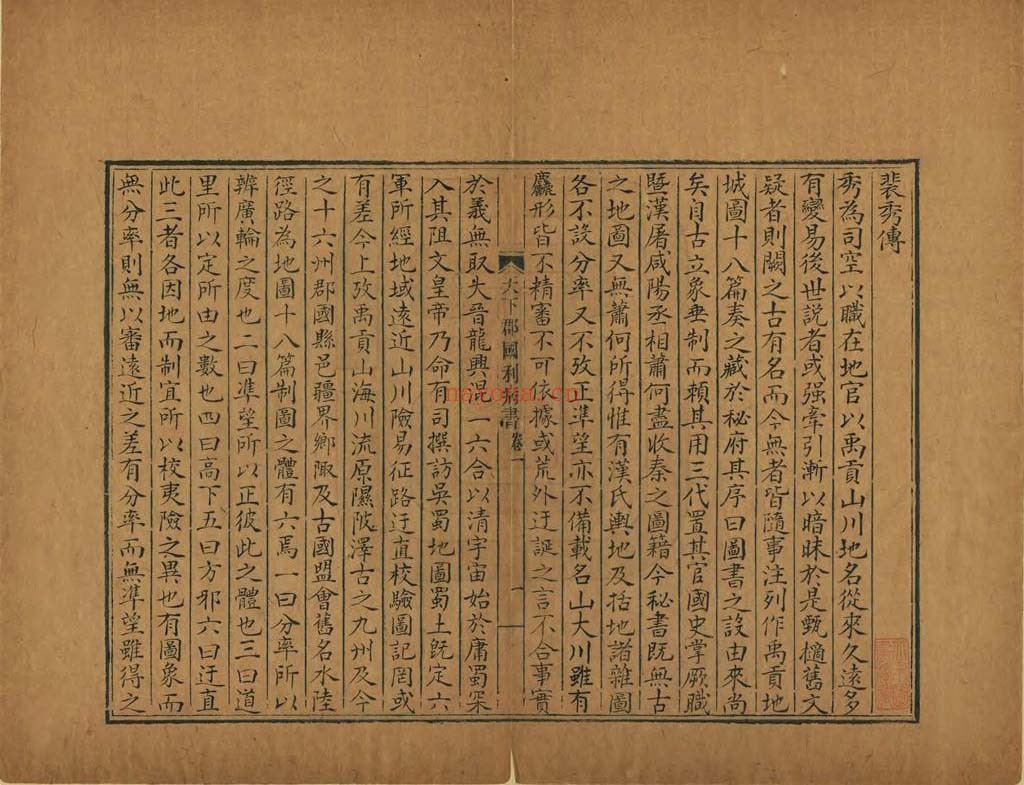 裴秀傳
秀為司空以職在地官以禹貢山川地名從來久遠多
有變易後世説者或强牽引漸以暗昧於是甄擿舊文
疑者則闕之古有名而今無者皆隨事注列作禹貢地
城圖十八篇奏之藏於秘府其序曰圖書之設由來尚
矣自古立象垂制而頼其用三代置其官國史掌厥職
暨漢屠咸陽丞相蕭何盡收秦之圖籍今秘書既無古
之地圖又無蕭何所得惟有漢氏輿地及括地諸雜圖
各不設分率又不攷正準望亦不備載名山大川雖有
麤形皆不精審不可依據或荒外迂誕之言不合事實
天下郡國利病書 卷一 一
於義無取大晉龍興混一六合以清宇宙始於庸蜀罙
入其阻文皇帝乃命有司撰訪吳蜀地圖蜀土既定六
軍所經地域遠近山川險易征路迂直校驗圖記罔或
有差今上攷禹貢山海川流原隰陂澤古之九州及今
之十六州郡國縣邑疆界鄉陬及古國盟會舊名水陸
徑路為地圖十八篇制圖之體有六焉一曰分率所以
辨廣輪之度也二曰準望所以正彼此之體也三曰道
里所以定所由之數也四曰高下五曰方邪六曰迂直
此三者各因地而制宜所以校夷險之異也有圖象而
無分率則無以審遠近之差有分率而無準望雖得之